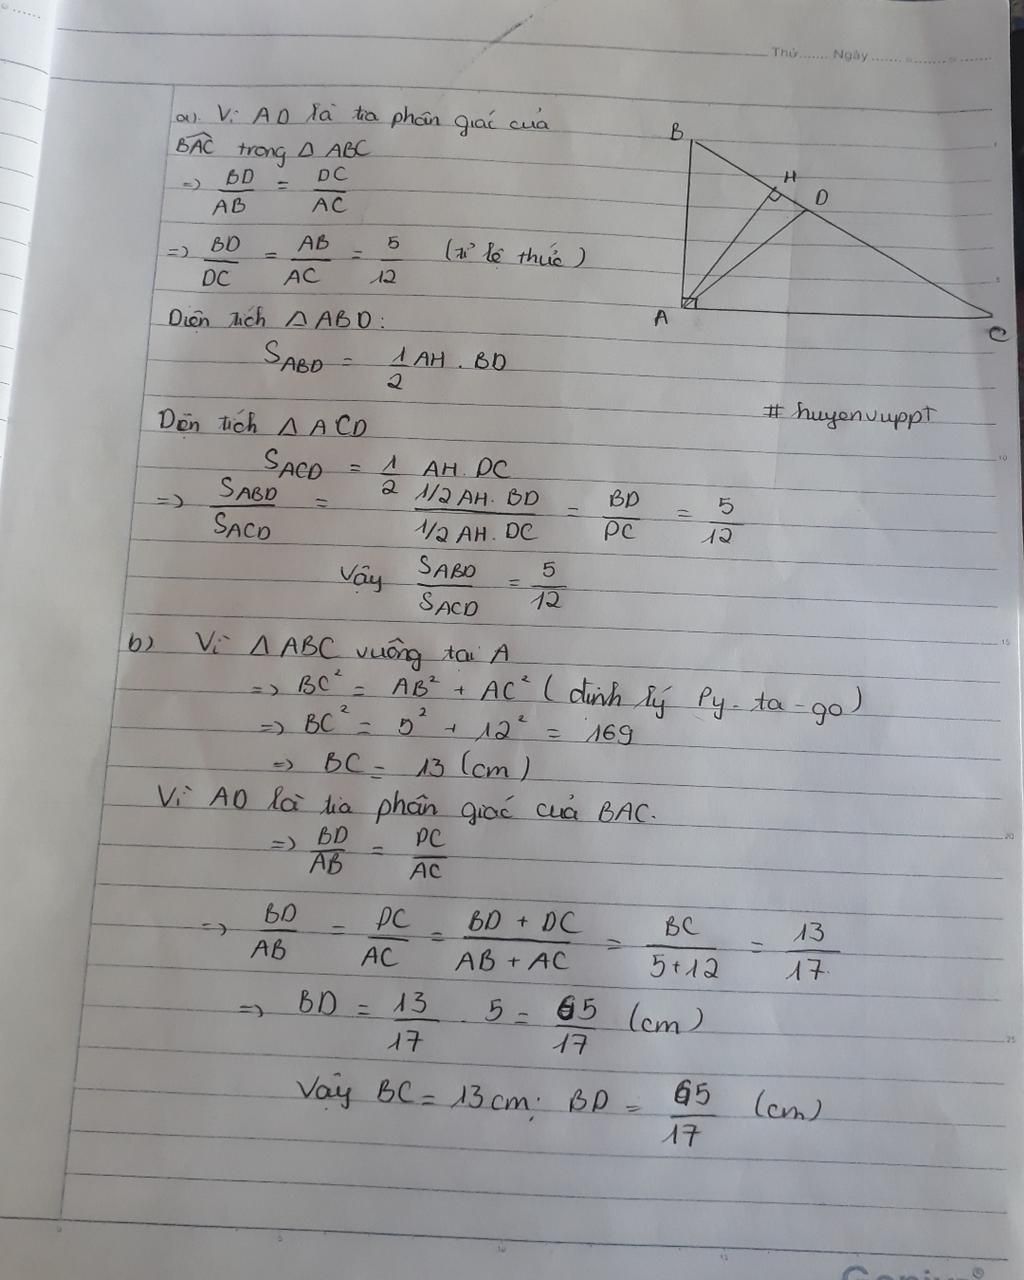 Thứ....... Ngày.......
a). Vì AD là tia phân giác của
B
BAC trong Δ ABC
H
=> BD/AB = DC/AC
D
=> BD/DC = AB/AC = 5/12 (tỉ lệ thức)
A
C
Diện tích Δ ABD:
S_ABD = 1/2 AH . BD
# huyenvuppt
Diện tích Δ ACD
S_ACD = 1/2 AH. DC
=> S_ABD/S_ACD = 1/2 AH. BD/1/2 AH. DC = BD/DC = 5/12
Vậy S_ABD/S_ACD = 5/12
b) Vì Δ ABC vuông tại A
=> BC² = AB² + AC² (định lý Py-ta-go)
=> BC² = 5² + 12² = 169
=> BC = 13 (cm)
Vì AD là tia phân giác của BAC.
=> BD/AB = DC/AC
=> BD/AB = DC/AC = BD + DC/AB + AC = BC/5+12 = 13/17.
=> BD = 13/17 . 5 = 65/17 (cm)
Vậy BC = 13cm; BD = 65/17 (cm)